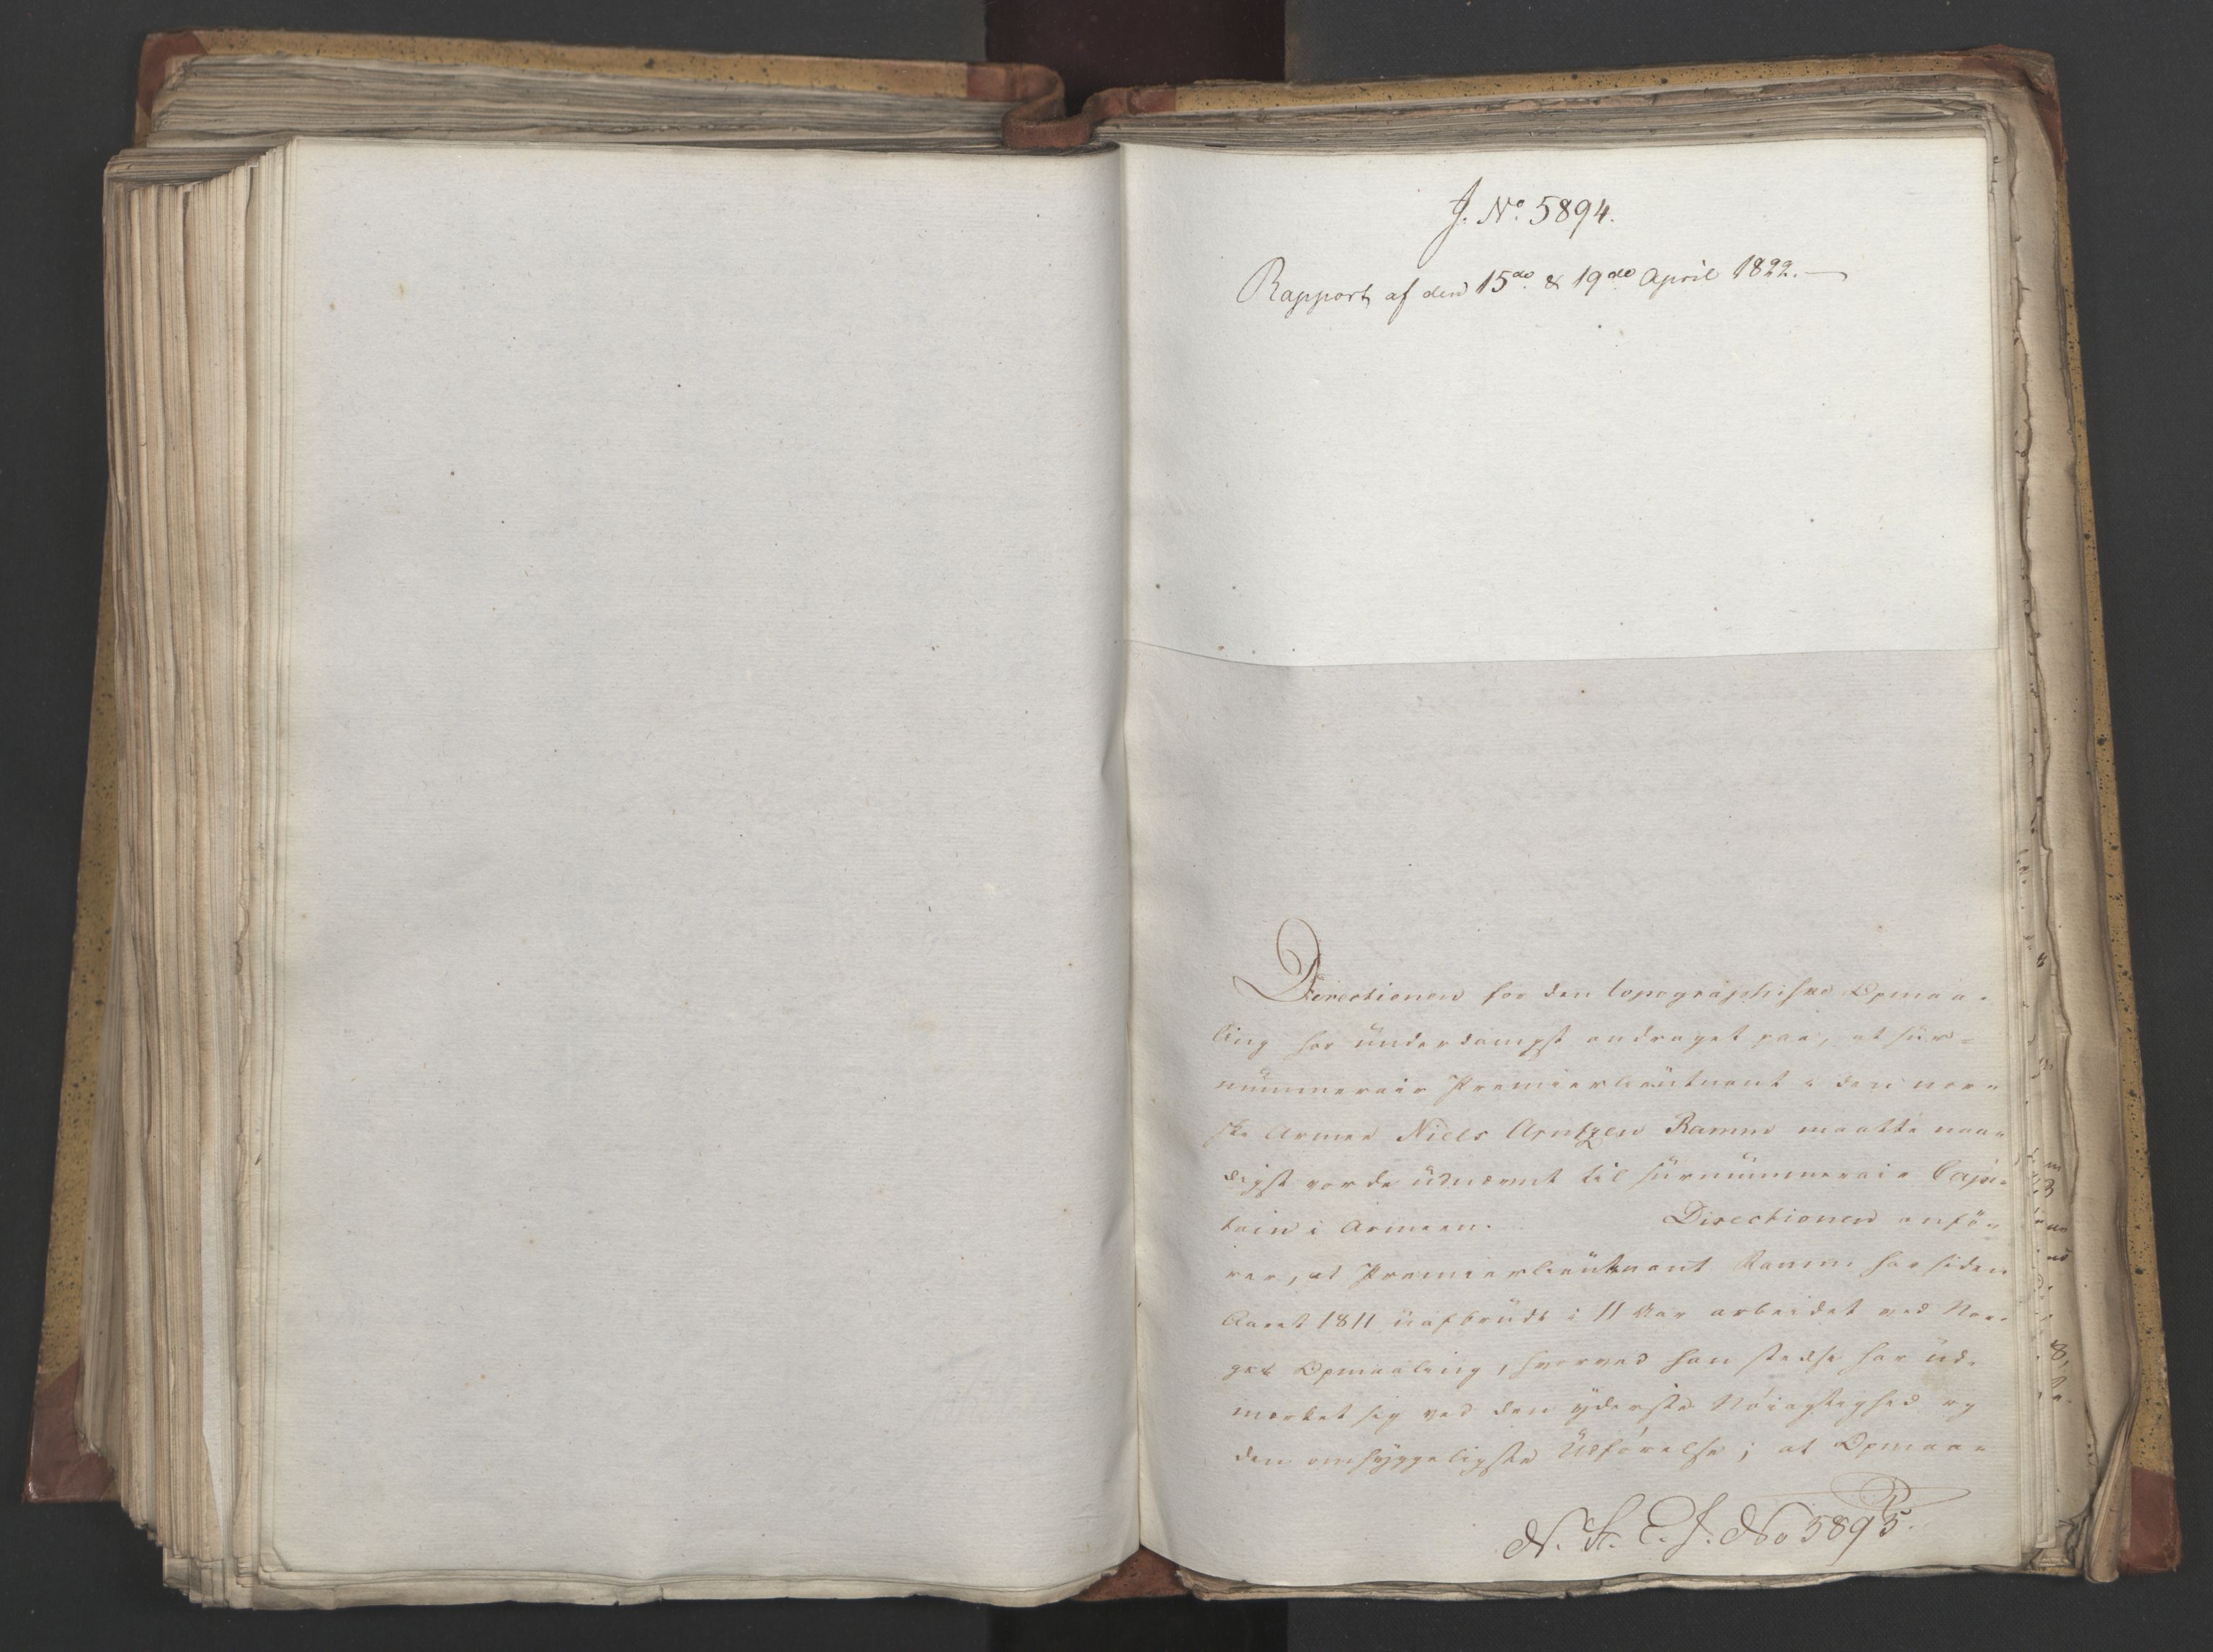 J. No. 5894.
Rapport af den 15de & 19de April 1822.
Directionen for den topographiske Opmaa-
ling har underdanigst andraget paa, at sur-
nummerair Premierlieutnant i den nor-
ske Armee Niels Arntzen Ramm maatte naa-
digst vorde udnævnt til surnummerair Capi-
tain i Armeen. Directionen anfö-
rer, at Premierlieutnant Ramm har siden
Aaret 1811 uafbrudt i 11 Aar arbeidet ved Nor-
ges Opmaaling, hvorved han stedse har ud-
mærket sig ved den yderste Nöiagtighed og
den omhyggeligste Udförelse; at Opmaa-
N. St. E. J. No 5895.